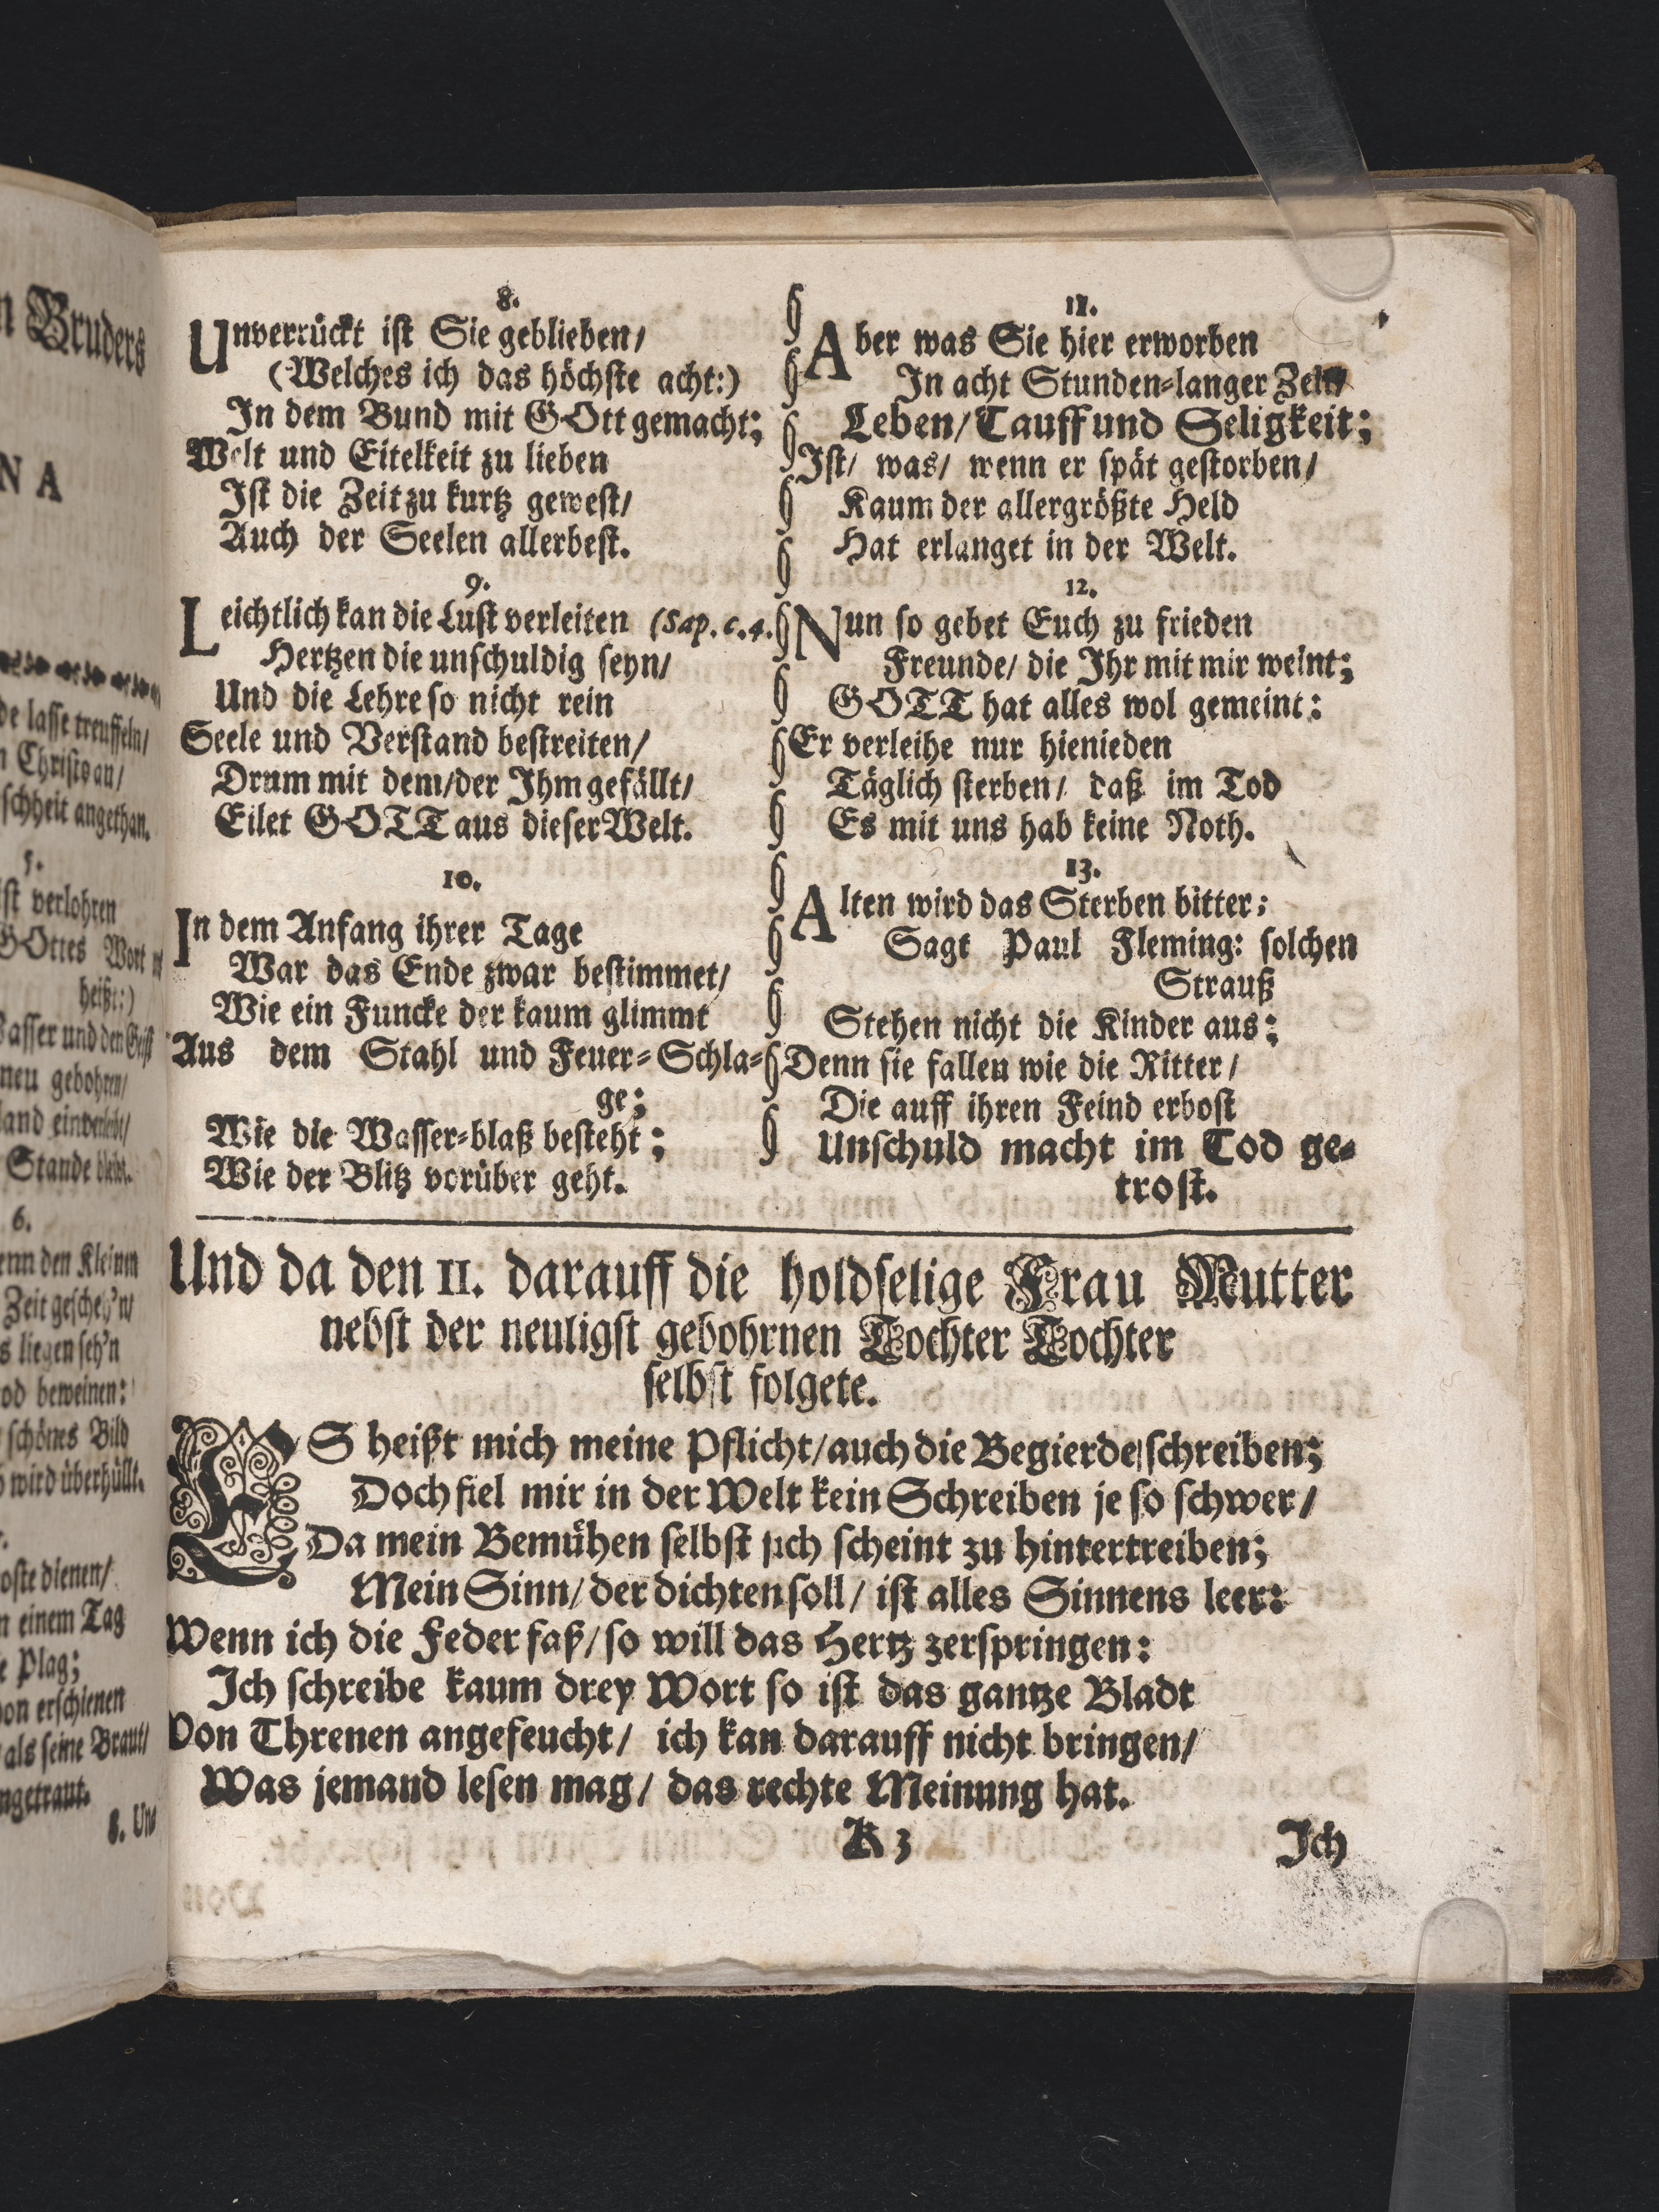 n Bruders
N A
de lasse treuffeln/
n Christo an/
schheit angethan.
5.
ist verlohren
GOttes Wort
heißt:)
Wasser und den Geist
neu gebohren/
land einverleibt/
Stande bleibt.
6.
enn den Kleinen
Zeit gescheh'n/
s liegen seh'n
od beweinen:
schönes Bild
wird überhüllt.
oste dienen/
n einem Tag
e Plag;
on erschienen
als seine Braut/
ngetraut.
8. Und
8.
Unverrückt ist Sie geblieben/
(Welches ich das höchste acht:)
In dem Bund mit GOtt gemacht;
Welt und Eitelkeit zu lieben
Ist die Zeit zu kurtz gewest/
Auch der Seelen allerbest.
9.
Leichtlich kan die Lust verleiten (Sap. c. 4.
Hertzen die unschuldig seyn/
Und die Lehre so nicht rein
Seele und Verstand bestreiten/
Drum mit dem/der Ihm gefällt/
Eilet GOTT aus dieser Welt.
10.
In dem Anfang ihrer Tage
War das Ende zwar bestimmet/
Wie ein Funcke der kaum glimmt
Aus dem Stahl und Feuer-Schla-
ge;
Wie die Wasser-blaß besteht;
Wie der Blitz vorüber geht.
11.
Aber was Sie hier erworben
In acht Stunden-langer Zeit/
Leben/Tauff und Seligkeit;
Ist/ was/ wenn er spät gestorben/
Kaum der allergrößte Held
Hat erlanget in der Welt.
12.
Nun so gebet Euch zu frieden
Freunde/ die Ihr mit mir weint;
GOTT hat alles wol gemeint:
Er verleihe nur hienieden
Täglich sterben/ daß im Tod
Es mit uns hab keine Noth.
13.
Alten wird das Sterben bitter;
Sagt Paul Fleming: solchen
Strauß
Stehen nicht die Kinder aus;
Denn sie fallen wie die Ritter/
Die auff ihren Feind erbost
Unschuld macht im Tod ge-
trost.
Und da den 11. darauff die holdselige Frau Mutter
nebst der neuligst gebohrnen Tochter Tochter
selbst folgete.
ES heißt mich meine Pflicht/auch die Begierde/schreiben;
Doch fiel mir in der Welt kein Schreiben je so schwer/
Da mein Bemühen selbst sich scheint zu hintertreiben;
Mein Sinn/ der dichten soll/ ist alles Sinnens leer:
Wenn ich die Feder faß/so will das Hertz zerspringen:
Ich schreibe kaum drey Wort so ist das gantze Bladt
Von Threnen angefeucht/ ich kan darauff nicht bringen/
Was jemand lesen mag/ das rechte Meinung hat.
K 3
Ich